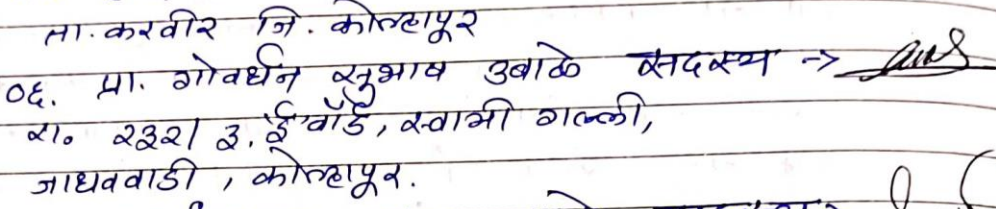 ता. करवीर जि. कोल्हापूर
०६. प्रा. गोवर्धन सुभाष उबाळे सदस्य →
रा. २३२/३, ई वॉर्ड, स्वामी गल्ली,
जाधववाडी, कोल्हापूर.